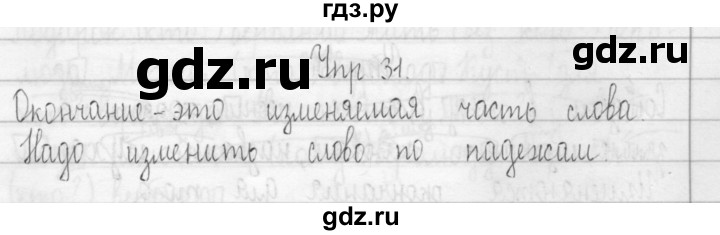 гдз.ру
gdz.ru
gdz.ru
Упр 31.
Окончание - это изменяемая часть слова
Надо изменить слово по падежам
gdz.ru